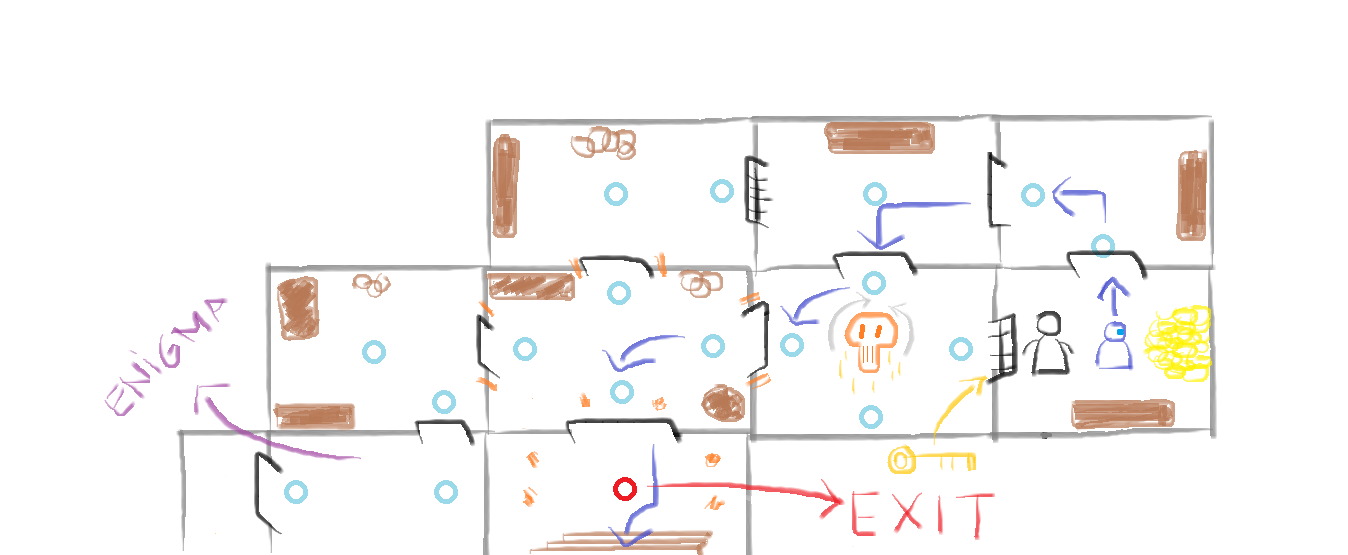 ENiGMA
EXIT